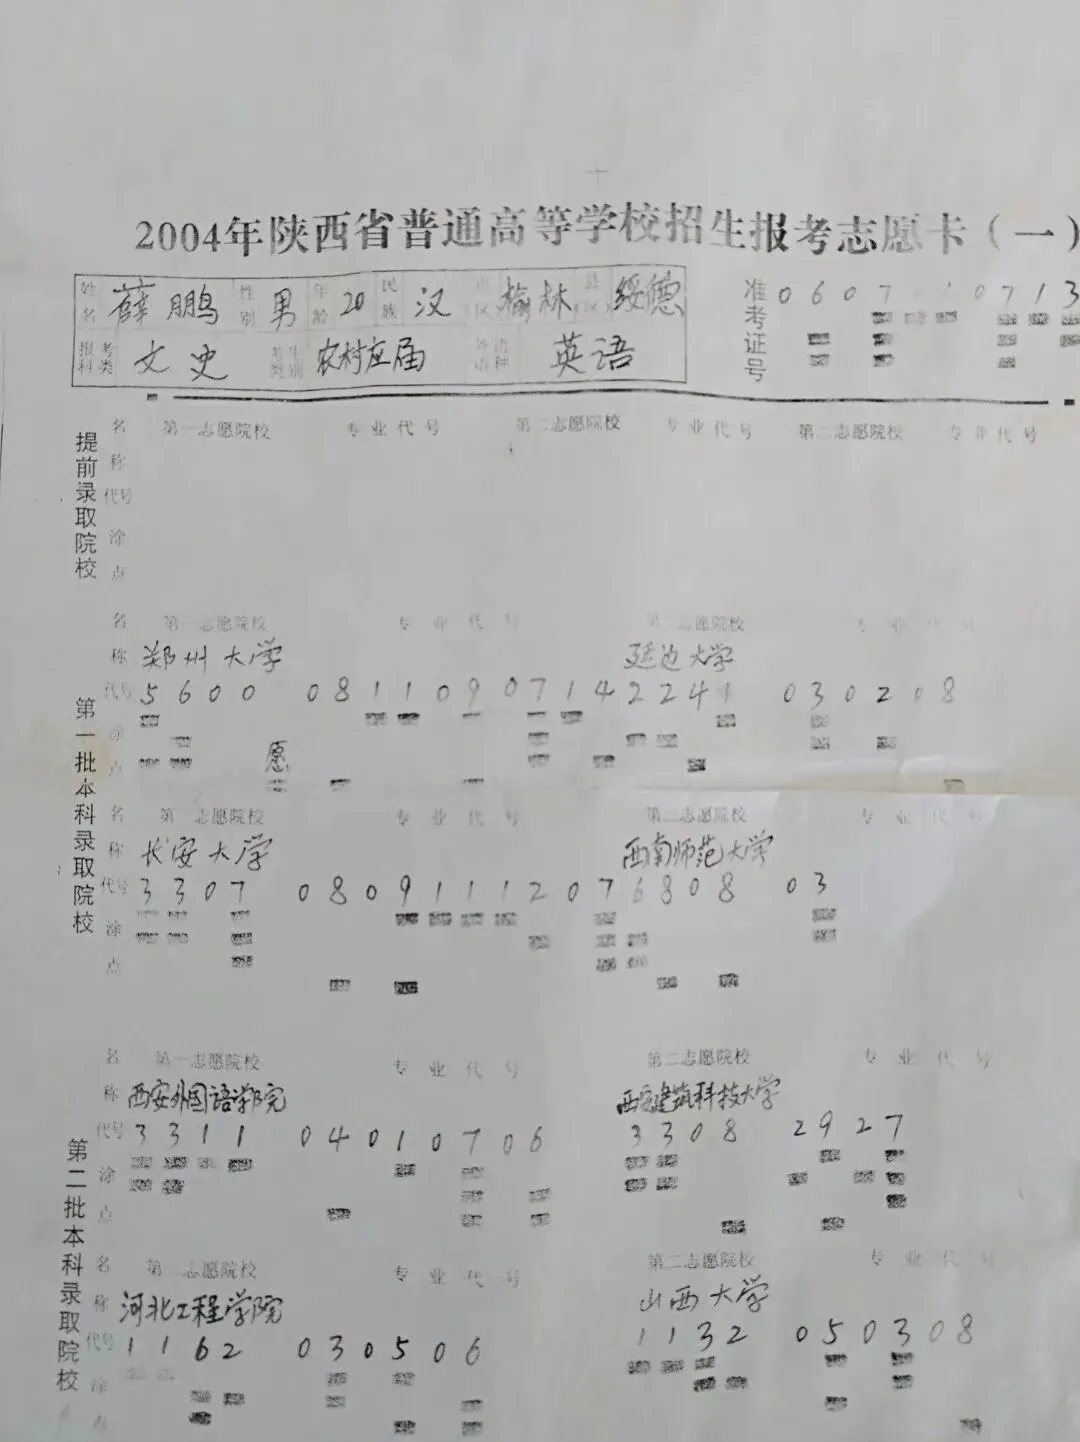 2004年陕西省普通高等学校招生报考志愿卡（一）
姓名 薛鹏 性别 男 年龄 20 民族 汉 市区 榆林 县区 绥德
报考科类 文史 考生类别 农村应届 外语语种 英语
准考证号 0607 10713
提前录取院校
名称 第一志愿院校 专业代号 第二志愿院校 专业代号 第二志愿院校 专业代号
代号
涂点
第一批本科录取院校
名称 第一志愿院校 专业代号 第二志愿院校 专业代号
郑州大学 延边大学
代号 5600 08110907142241 030208
涂点 愿
名称 第一志愿院校 专业代号 第二志愿院校 专业代号
长安大学 西南师范大学
代号 3307 08091112076808 03
涂点
第二批本科录取院校
名称 第一志愿院校 专业代号 第二志愿院校 专业代号
西安外国语学院 西安建筑科技大学
代号 3311 04010706 3308 2927
涂点
名称 第二志愿院校 专业代号 第二志愿院校 专业代号
河北工程学院 山西大学
代号 1162 030506 1132 050308
涂点